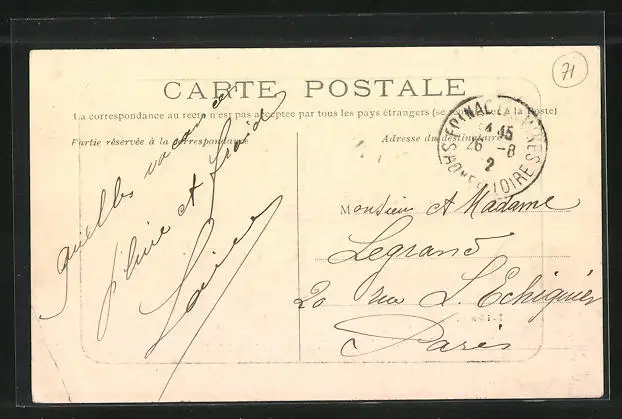 71
CARTE POSTALE
La correspondance au recto n'est pas acceptée par tous les pays étrangers (se renseigner à la Poste)
Partie réservée à la correspondance
Adresse du destinataire
15
26 -8
2
LOIRE
quelles vacances
pluie et froid
Monsieur et Madame
Legrand
20 rue L'Echiquier
Paris